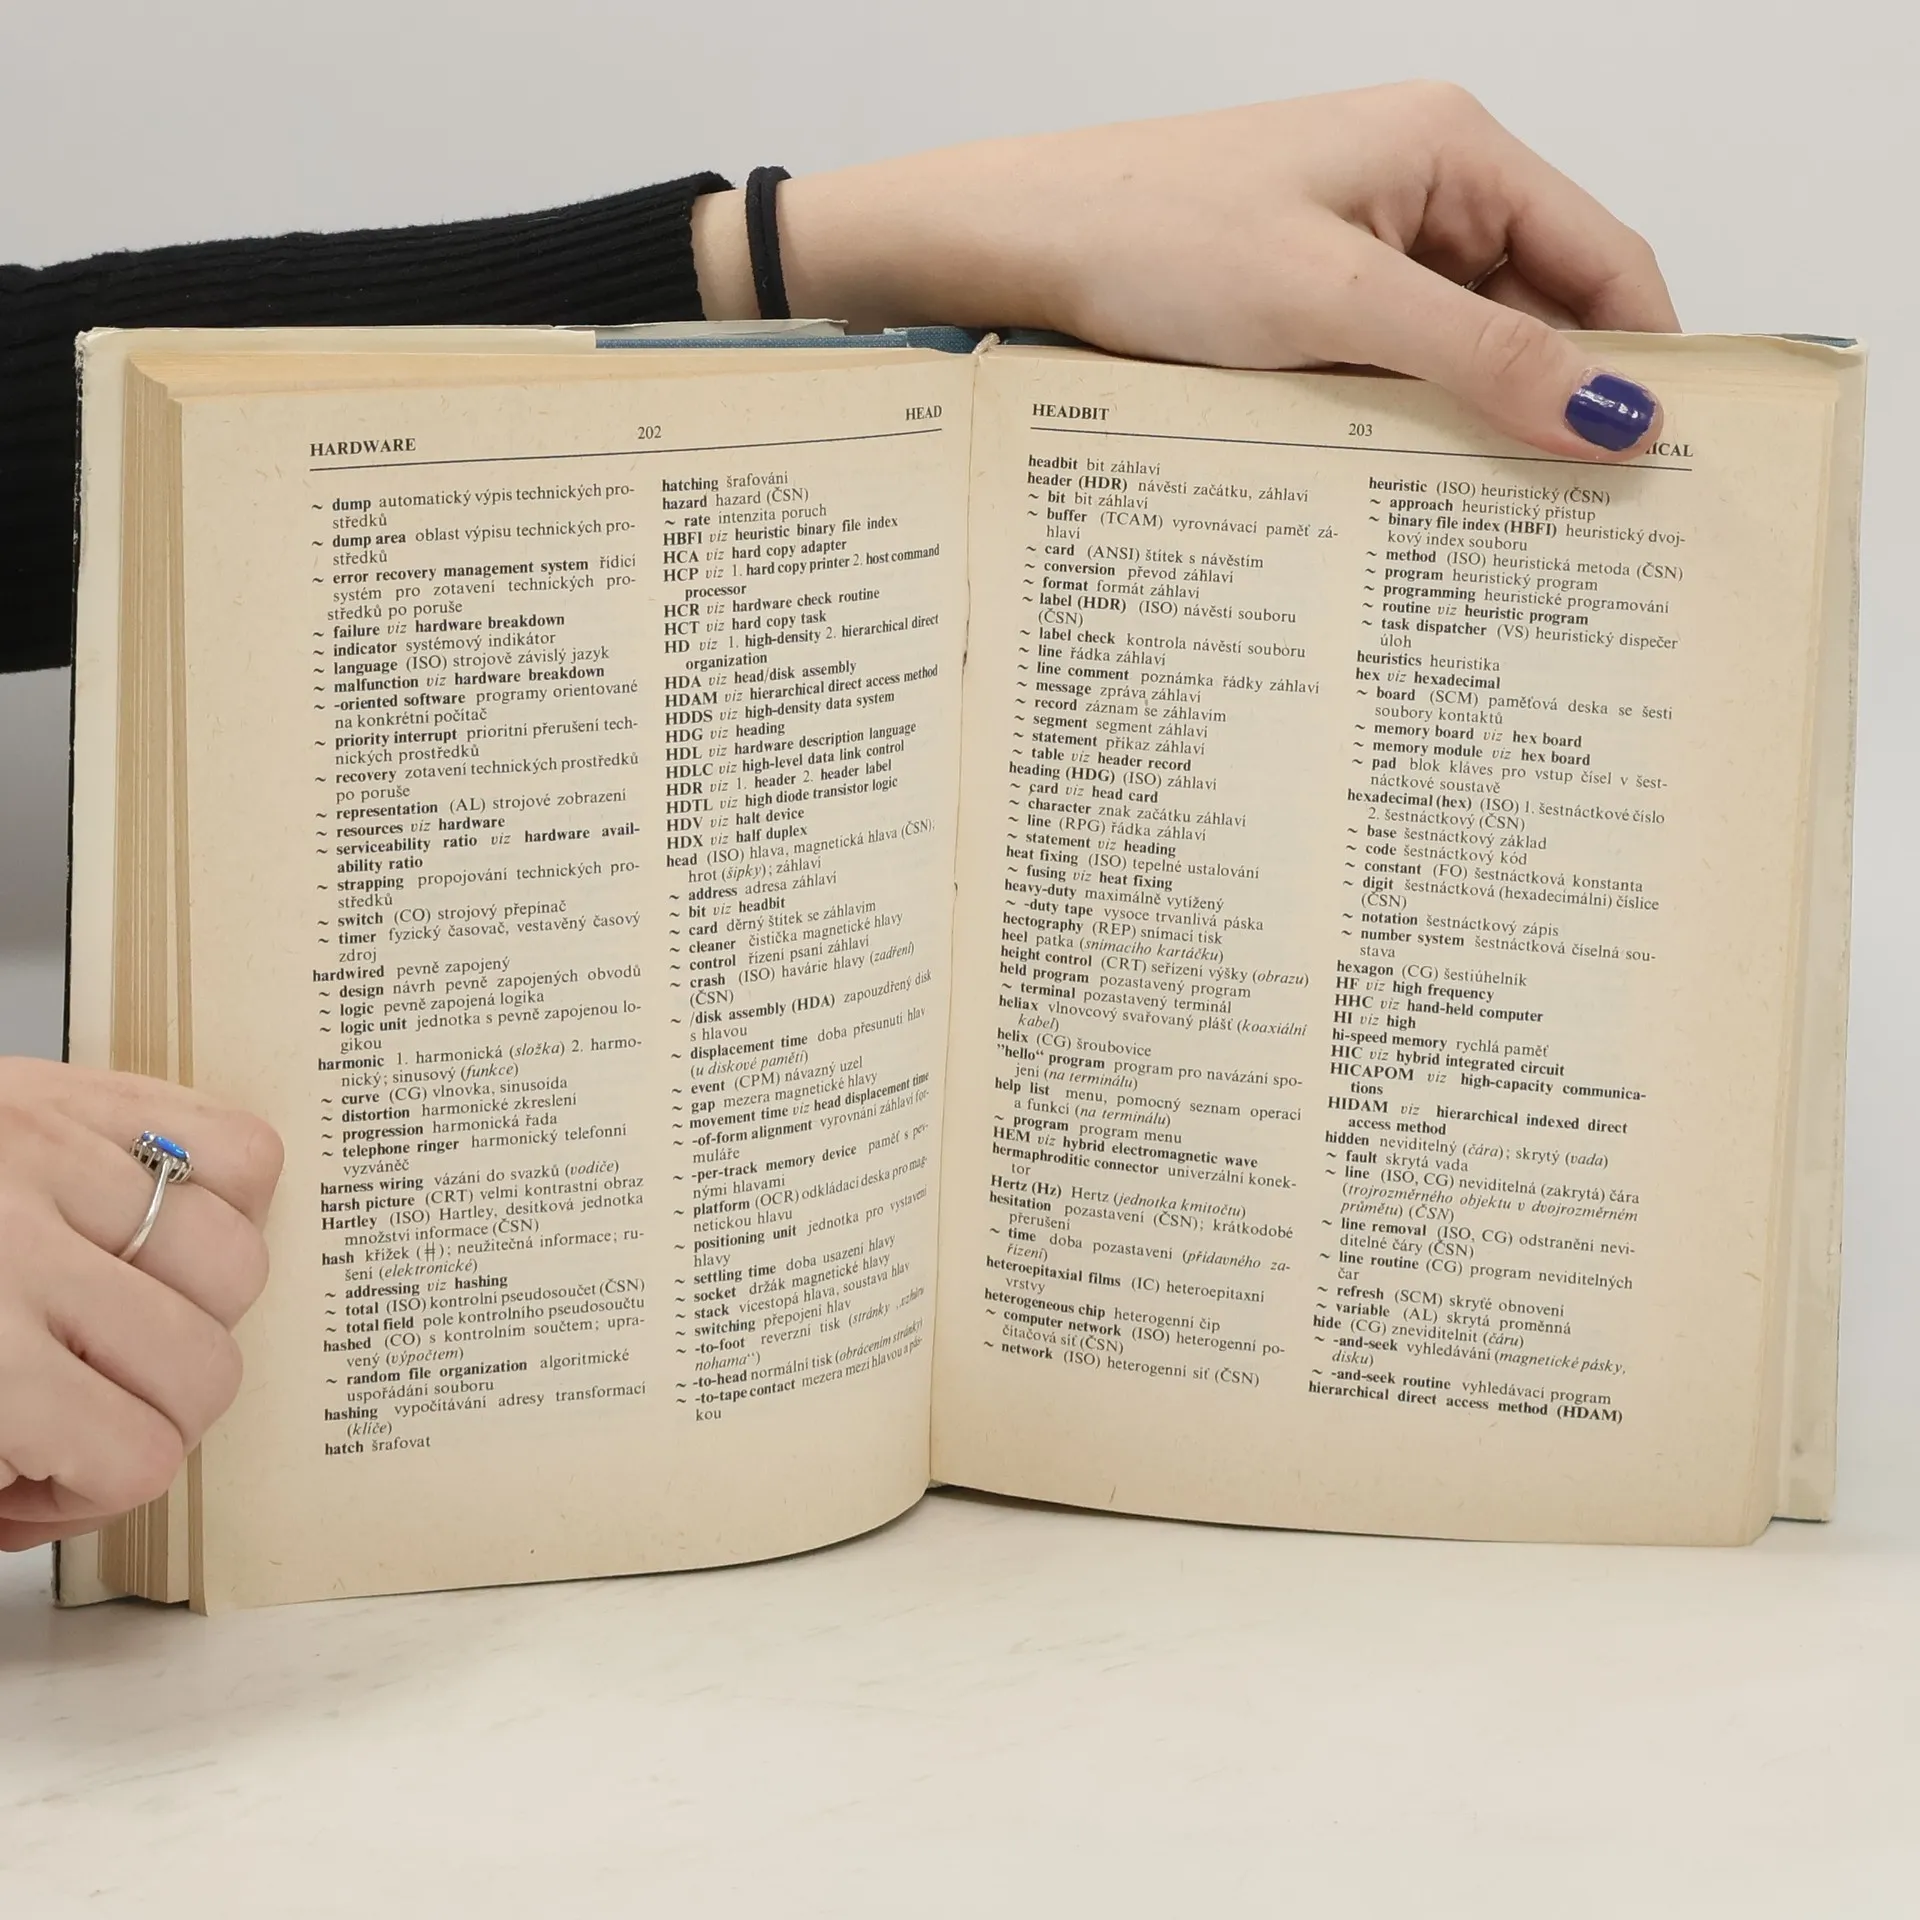 HARDWARE
202
HEAD
~ dump automatický výpis technických pro-
středků
~ dump area oblast výpisu technických pro-
středků
~ error recovery management system řídicí
systém pro zotavení technických pro-
středků po poruše
~ failure viz hardware breakdown
~ indicator systémový indikátor
~ language (ISO) strojově závislý jazyk
~ malfunction viz hardware breakdown
~ -oriented software programy orientované
na konkrétní počítač
~ priority interrupt prioritní přerušení tech-
nických prostředků
~ recovery zotavení technických prostředků
po poruše
~ representation (AL) strojové zobrazení
~ resources viz hardware
~ serviceability ratio viz hardware avail-
ability ratio
~ strapping propojování technických pro-
středků
~ switch (CO) strojový přepínač
~ timer fyzický časovač, vestavěný časový
zdroj
hardwired pevně zapojený
~ design návrh pevně zapojených obvodů
~ logic pevně zapojená logika
~ logic unit jednotka s pevně zapojenou lo-
gikou
harmonic 1. harmonická (složka) 2. harmo-
nický; sinusový (funkce)
~ curve (CG) vlnovka, sinusoida
~ distortion harmonické zkreslení
~ progression harmonická řada
~ telephone ringer harmonický telefonní
vyzváněč
harness wiring vázání do svazků (vodiče)
harsh picture (CRT) velmi kontrastní obraz
Hartley (ISO) Hartley, desítková jednotka
množství informace (ČSN)
hash křížek (⌗); neužitečná informace; ru-
šení (elektronické)
~ addressing viz hashing
~ total (ISO) kontrolní pseudosoučet (ČSN)
~ total field pole kontrolního pseudosoučtu
hashed (CO) s kontrolním součtem; upra-
vený (výpočtem)
~ random file organization algoritmické
uspořádání souboru
hashing vypočítávání adresy transformací
(klíče)
hatch šrafovat
hatching šrafování
hazard hazard (ČSN)
~ rate intenzita poruch
HBFI viz heuristic binary file index
HCA viz hard copy adapter
HCP viz 1. hard copy printer 2. host command
processor
HCR viz hardware check routine
HCT viz hard copy task
HD viz 1. high-density 2. hierarchical direct
organization
HDA viz head/disk assembly
HDAM viz hierarchical direct access method
HDDS viz high-density data system
HDG viz heading
HDL viz hardware description language
HDLC viz high-level data link control
HDR viz 1. header 2. header label
HDTL viz high diode transistor logic
HDV viz halt device
HDX viz half duplex
head (ISO) hlava, magnetická hlava (ČSN);
hrot (šipky); záhlaví
~ address adresa záhlaví
~ bit viz headbit
~ card děrný štítek se záhlavím
~ cleaner čistička magnetické hlavy
~ control řízení psaní záhlaví
~ crash (ISO) havárie hlavy (zadření)
(ČSN)
~ /disk assembly (HDA) zapouzdřený disk
s hlavou
~ displacement time doba přesunutí hlav
(u diskové paměti)
~ event (CPM) návazný uzel
~ gap mezera magnetické hlavy
~ movement time viz head displacement time
~ -of-form alignment vyrovnání záhlaví for-
muláře
~ -per-track memory device paměť s pev-
nými hlavami
~ platform (OCR) odkládací deska pro mag-
netickou hlavu
~ positioning unit jednotka pro vystavení
hlavy
~ settling time doba usazení hlavy
~ socket držák magnetické hlavy
~ stack vícestopá hlava, soustava hlav
~ switching přepojení hlav
~ -to-foot reverzní tisk (stránky „vzhůru
nohama“)
~ -to-head normální tisk (obrácením stránky)
~ -to-tape contact mezera mezi hlavou a pás-
kou
HEADBIT
203
ICAL
headbit bit záhlaví
header (HDR) návěstí začátku, záhlaví
~ bit bit záhlaví
~ buffer (TCAM) vyrovnávací paměť zá-
hlaví
~ card (ANSI) štítek s návěstím
~ conversion převod záhlaví
~ format formát záhlaví
~ label (HDR) (ISO) návěstí souboru
(ČSN)
~ label check kontrola návěstí souboru
~ line řádka záhlaví
~ line comment poznámka řádky záhlaví
~ message zpráva záhlaví
~ record záznam se záhlavím
~ segment segment záhlaví
~ statement příkaz záhlaví
~ table viz header record
heading (HDG) (ISO) záhlaví
~ card viz head card
~ character znak začátku záhlaví
~ line (RPG) řádka záhlaví
~ statement viz heading
heat fixing (ISO) tepelné ustalování
~ fusing viz heat fixing
heavy-duty maximálně vytížený
~ -duty tape vysoce trvanlivá páska
hectography (REP) snímací tisk
heel patka (snímacího kartáčku)
height control (CRT) seřízení výšky (obrazu)
held program pozastavený program
~ terminal pozastavený terminál
heliax vlnovcový svařovaný plášť (koaxiální
kabel)
helix (CG) šroubovice
"hello“ program program pro navázání spo-
jení (na terminálu)
help list menu, pomocný seznam operací
a funkcí (na terminálu)
~ program program menu
HEM viz hybrid electromagnetic wave
hermaphroditic connector univerzální konek-
tor
Hertz (Hz) Hertz (jednotka kmitočtu)
hesitation pozastavení (ČSN); krátkodobé
přerušení
~ time doba pozastavení (přídavného za-
řízení)
heteroepitaxial films (IC) heteroepitaxní
vrstvy
heterogeneous chip heterogenní čip
~ computer network (ISO) heterogenní po-
čítačová síť (ČSN)
~ network (ISO) heterogenní síť (ČSN)
heuristic (ISO) heuristický (ČSN)
~ approach heuristický přístup
~ binary file index (HBFI) heuristický dvoj-
kový index souboru
~ method (ISO) heuristická metoda (ČSN)
~ program heuristický program
~ programming heuristické programování
~ routine viz heuristic program
~ task dispatcher (VS) heuristický dispečer
úloh
heuristics heuristika
hex viz hexadecimal
~ board (SCM) paměťová deska se šesti
soubory kontaktů
~ memory board viz hex board
~ memory module viz hex board
~ pad blok kláves pro vstup čísel v šest-
náctkové soustavě
hexadecimal (hex) (ISO) 1. šestnáctkové číslo
2. šestnáctkový (ČSN)
~ base šestnáctkový základ
~ code šestnáctkový kód
~ constant (FO) šestnáctková konstanta
~ digit šestnáctková (hexadecimální) číslice
(ČSN)
~ notation šestnáctkový zápis
~ number system šestnáctková číselná sou-
stava
hexagon (CG) šestiúhelník
HF viz high frequency
HHC viz hand-held computer
HI viz high
hi-speed memory rychlá paměť
HIC viz hybrid integrated circuit
HICAPOM viz high-capacity communica-
tions
HIDAM viz hierarchical indexed direct
access method
hidden neviditelný (čára); skrytý (vada)
~ fault skrytá vada
~ line (ISO, CG) neviditelná (zakrytá) čára
(trojrozměrného objektu v dvojrozměrném
průmětu) (ČSN)
~ line removal (ISO, CG) odstranění nevi-
ditelné čáry (ČSN)
~ line routine (CG) program neviditelných
čar
~ refresh (SCM) skryté obnovení
~ variable (AL) skrytá proměnná
hide (CG) zneviditelnit (čáru)
~ -and-seek vyhledávání (magnetické pásky,
disku)
~ -and-seek routine vyhledávací program
hierarchical direct access method (HDAM)